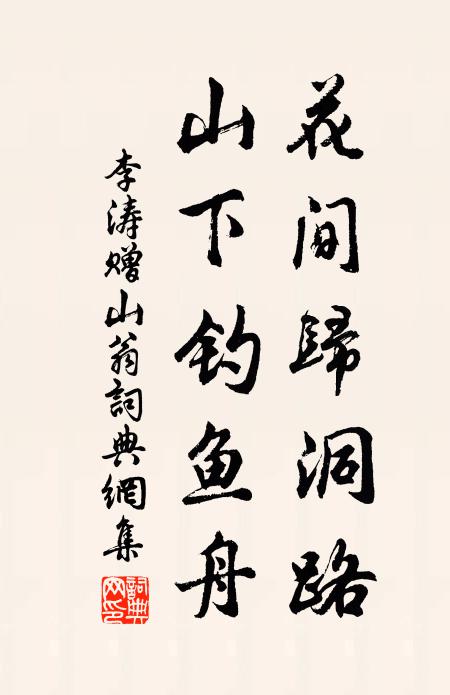 花间歸洞路
山下钓鱼舟
李涛赠山翁詞典網集
詞典